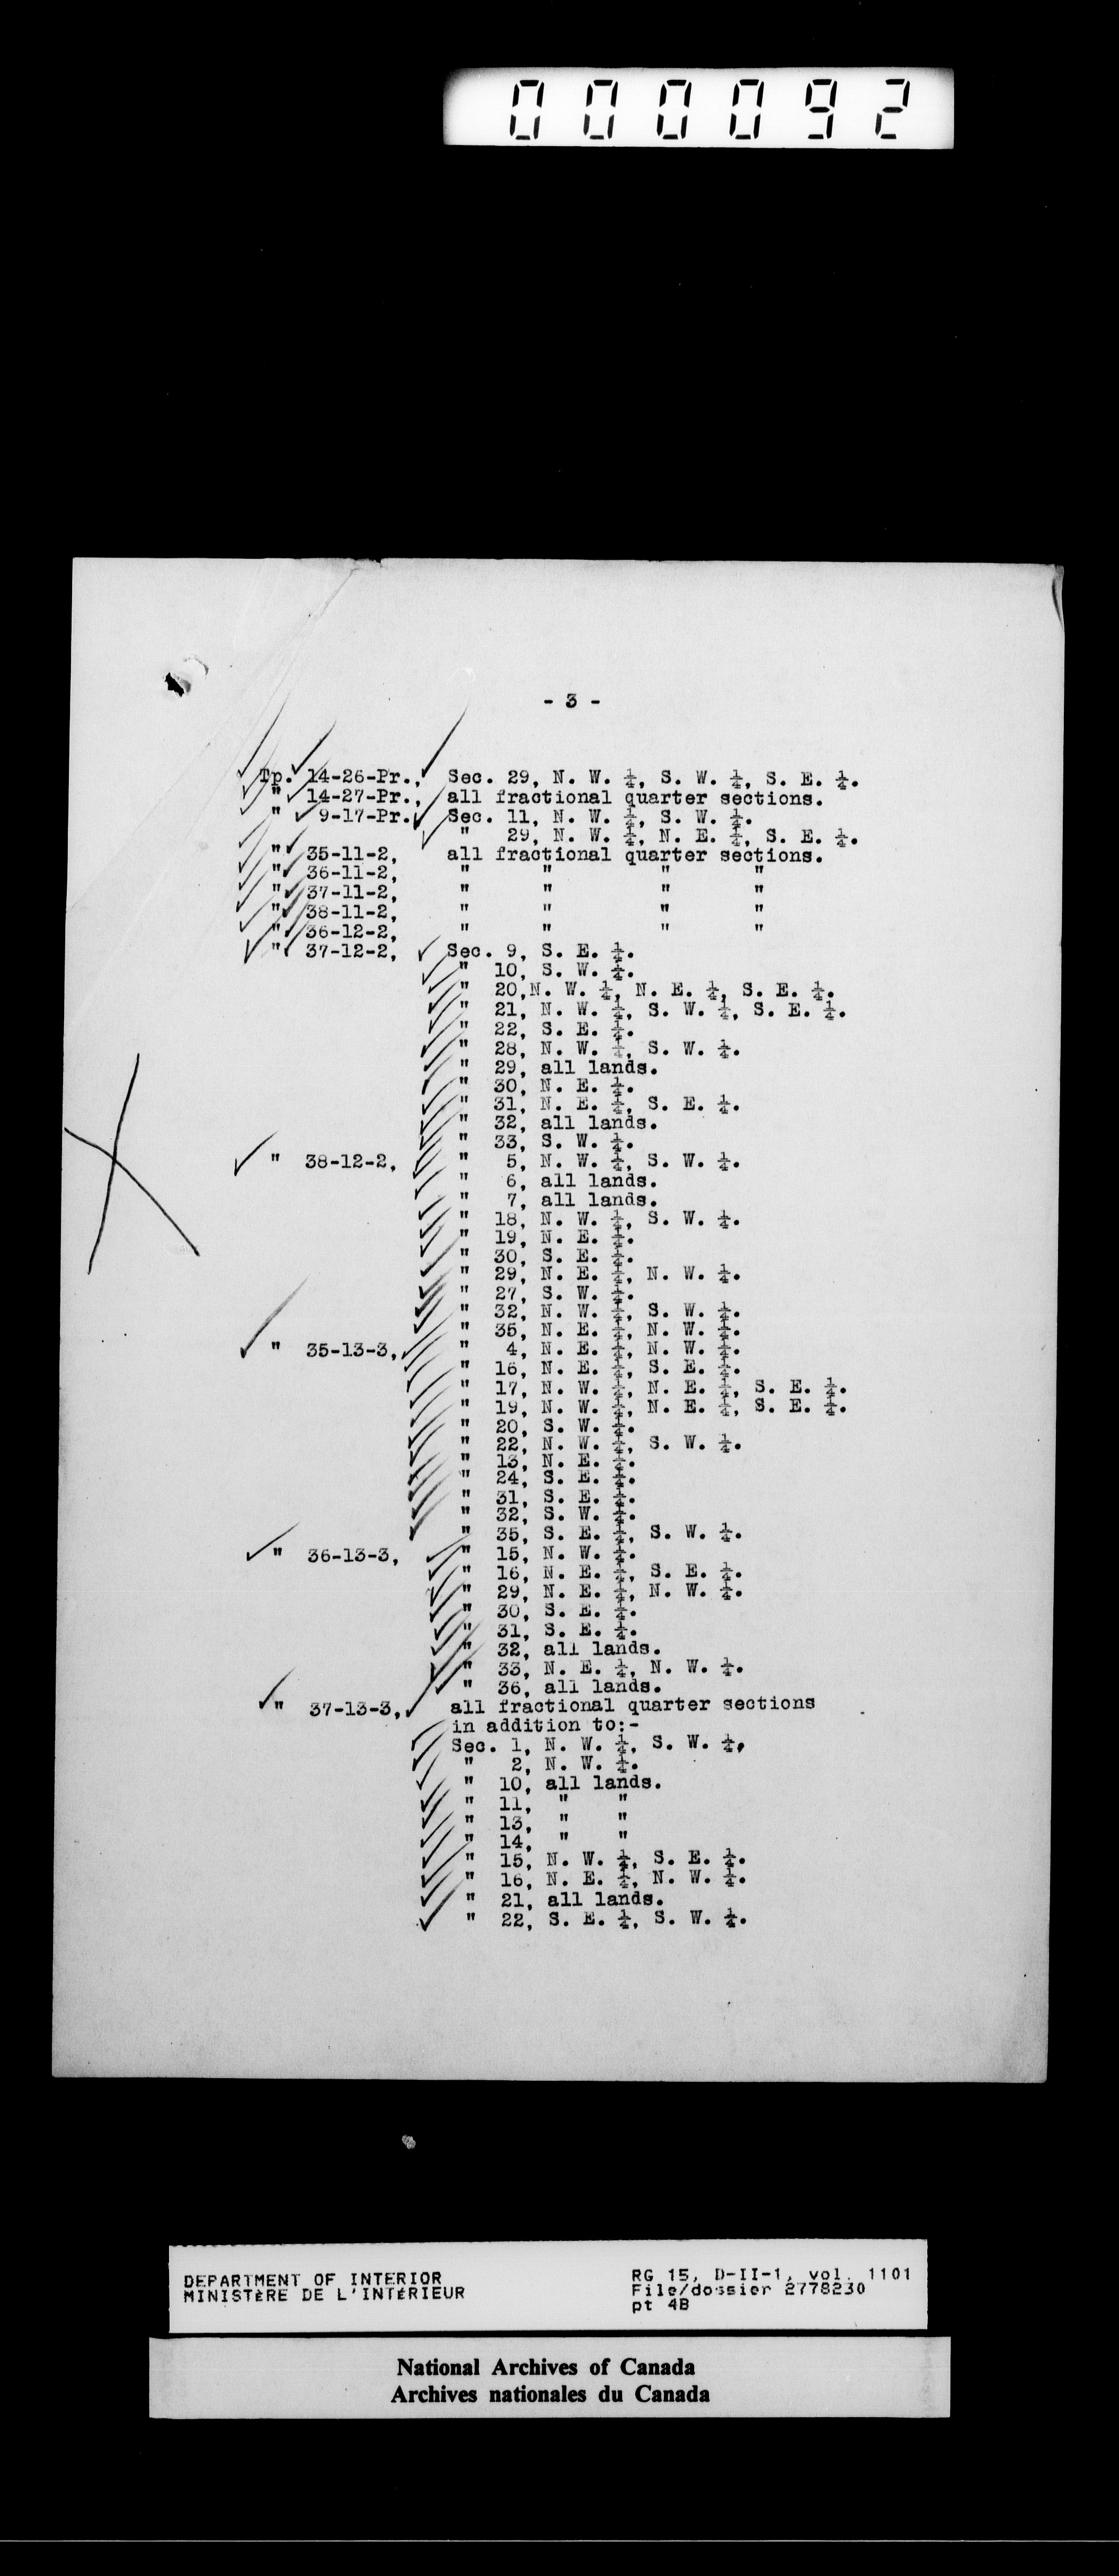 000092
- 3 -
Tp. 14-26-Pr., Sec. 29, N. W. ¼, S. W. ¼, S. E. ¼.
" 14-27-Pr., all fractional quarter sections.
" 9-17-Pr., Sec. 11, N. W. ¼, S. W. ¼.
" 29, N. W. ¼, N. E. ¼, S. E. ¼.
" 35-11-2, all fractional quarter sections.
" 36-11-2, " " " "
" 37-11-2, " " " "
" 38-11-2, " " " "
" 36-12-2, " " " "
" 37-12-2, Sec. 9, S. E. ¼.
" 10, S. W. ¼.
" 20,N. W. ¼, N. E. ¼, S. E. ¼.
" 21, N. W. ¼, S. W. ¼, S. E. ¼.
" 22, S. E. ¼.
" 28, N. W. ¼, S. W. ¼.
" 29, all lands.
" 30, N. E. ¼.
" 31, N. E. ¼, S. E. ¼.
" 32, all lands.
" 33, S. W. ¼.
" 38-12-2, " 5, N. W. ¼, S. W. ¼.
" 6, all lands.
" 7, all lands.
" 18, N. W. ¼, S. W. ¼.
" 19, N. E. ¼.
" 30, S. E. ¼.
" 29, N. E. ¼, N. W. ¼.
" 27, S. W. ¼.
" 32, N. W. ¼, S. W. ¼.
" 35, N. E. ¼, N. W. ¼.
" 35-13-3, " 4, N. E. ¼, N. W. ¼.
" 16, N. E. ¼, S. E. ¼.
" 17, N. W. ¼, N. E. ¼, S. E. ¼.
" 19, N. W. ¼, N. E. ¼, S. E. ¼.
" 20, S. W. ¼.
" 22, N. W. ¼, S. W. ¼.
" 13, N. E. ¼.
" 24, S. E. ¼.
" 31, S. E. ¼.
" 32, S. W. ¼.
" 35, S. E. ¼, S. W. ¼.
" 36-13-3, " 15, N. W. ¼.
" 16, N. E. ¼, S. E. ¼.
" 29, N. E. ¼, N. W. ¼.
" 30, S. E. ¼.
" 31, S. E. ¼.
" 32, all lands.
" 33, N. E. ¼, N. W. ¼.
" 36, all lands.
" 37-13-3, all fractional quarter sections
in addition to:-
Sec. 1, N. W. ¼, S. W. ¼,
" 2, N. W. ¼.
" 10, all lands.
" 11, " "
" 13, " "
" 14, " "
" 15, N. W. ¼, S. E. ¼.
" 16, N. E. ¼, N. W. ¼.
" 21, all lands.
" 22, S. E. ¼, S. W. ¼.
DEPARTMENT OF INTERIOR
MINISTÈRE DE L'INTÉRIEUR
RG 15, D-II-1, vol. 1101
File/dossier 2778230
pt 4B
National Archives of Canada
Archives nationales du Canada